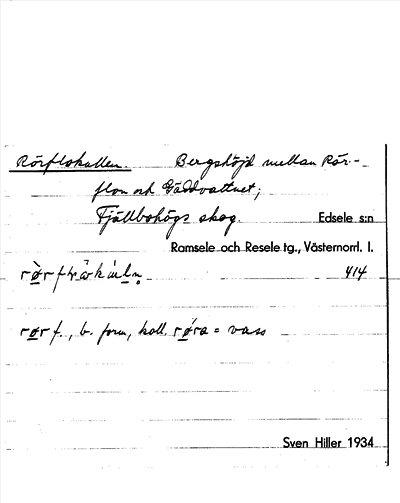 Rörflokullen. Bergshöjd mellan Rör-
flon och Gäddvattnet;
Fjällbohögs skog. Edsele s:n
Ramsele och Resele tg., Västernorrl. l.
414
rør f., b. form, koll. røra = vass
Sven Hiller 1934